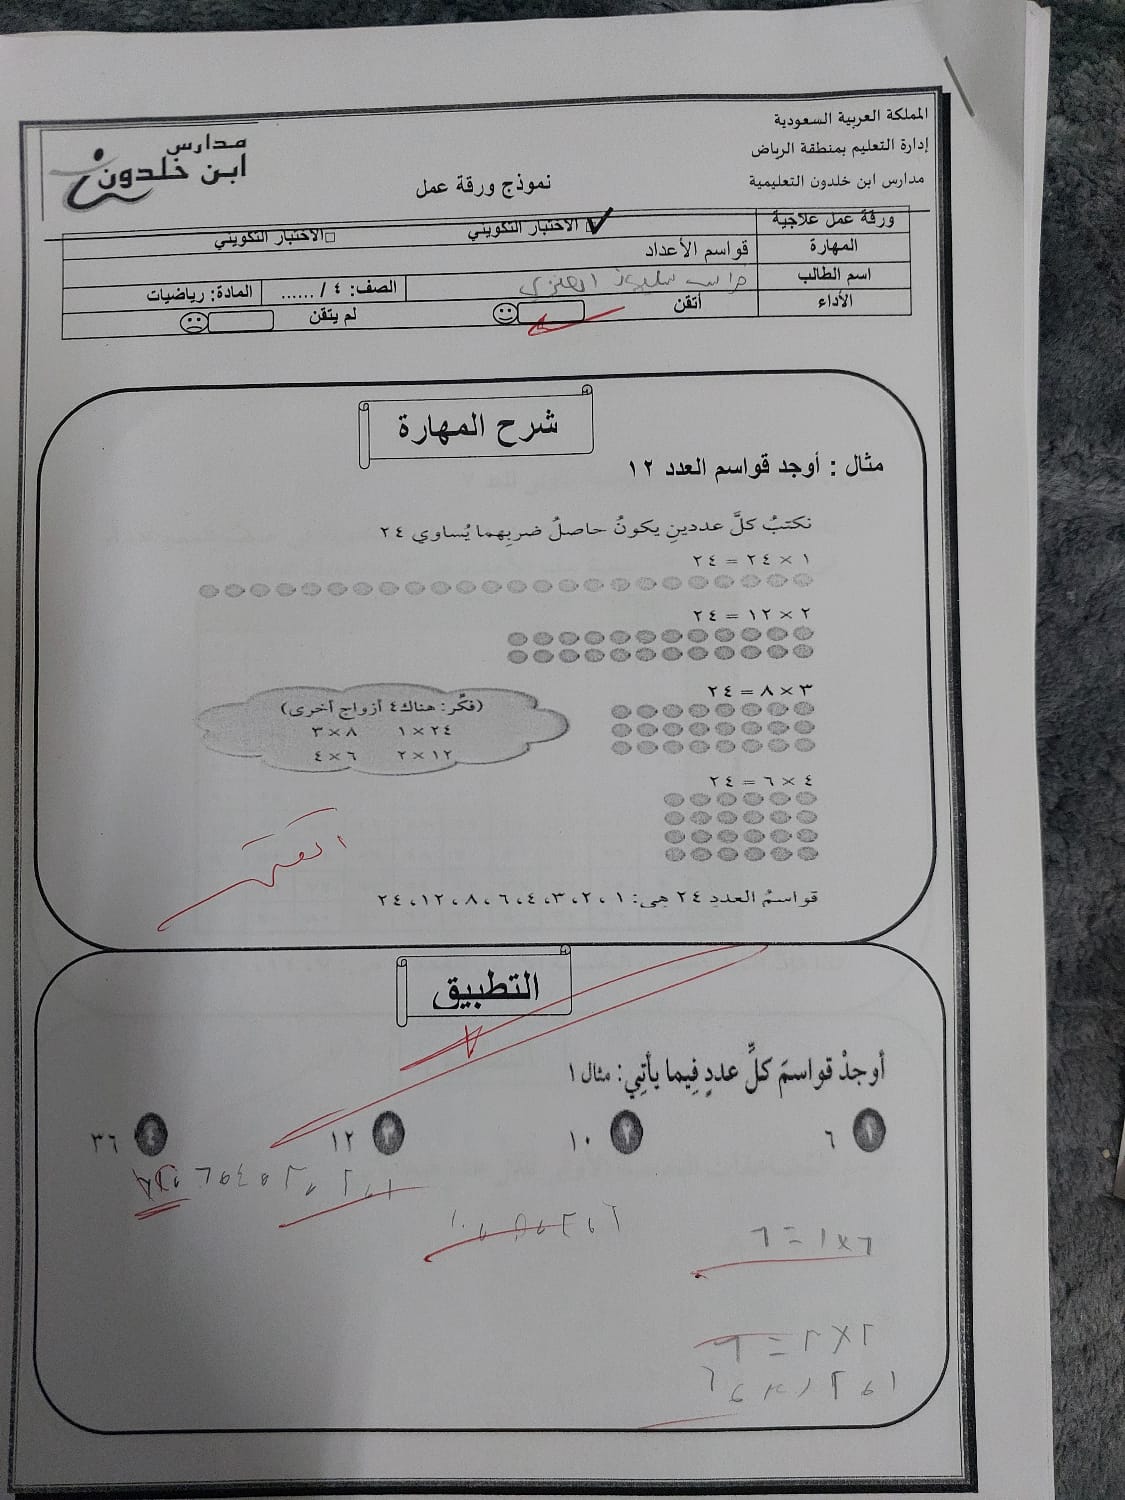 المملكة العربية السعودية
إدارة التعليم بمنطقة الرياض
مدارس ابن خلدون التعليمية
مدارس
ابن خلدون
نموذج ورقة عمل
ورقة عمل علاجية ✓ الاختبار التكويني □الاختبار التكويني
المهارة قواسم الأعداد
اسم الطالب الصف: ٤ / ...... المادة: رياضيات
الأداء أتقن لم يتقن
شرح المهارة
مثال : أوجد قواسم العدد ١٢
نكتبُ كلَّ عددينِ يكونُ حاصلُ ضربِهما يُساوي ٢٤
١ × ٢٤ = ٢٤
٢ × ١٢ = ٢٤
٣ × ٨ = ٢٤
(فكِّر: هناك ٤ أزواج أخرى)
٢٤ × ١ ٨ × ٣
١٢ × ٢ ٦ × ٤
٤ × ٦ = ٢٤
قواسمُ العددِ ٢٤ هي: ١ ، ٢ ، ٣ ، ٤ ، ٦ ، ٨ ، ١٢ ، ٢٤
التطبيق
أوجدْ قواسمَ كلِّ عددٍ فِيما يأتِي: مثال ١
١ ٦ ٢ ١٠ ٣ ١٢ ٤ ٣٦
٦ × ١ = ٦